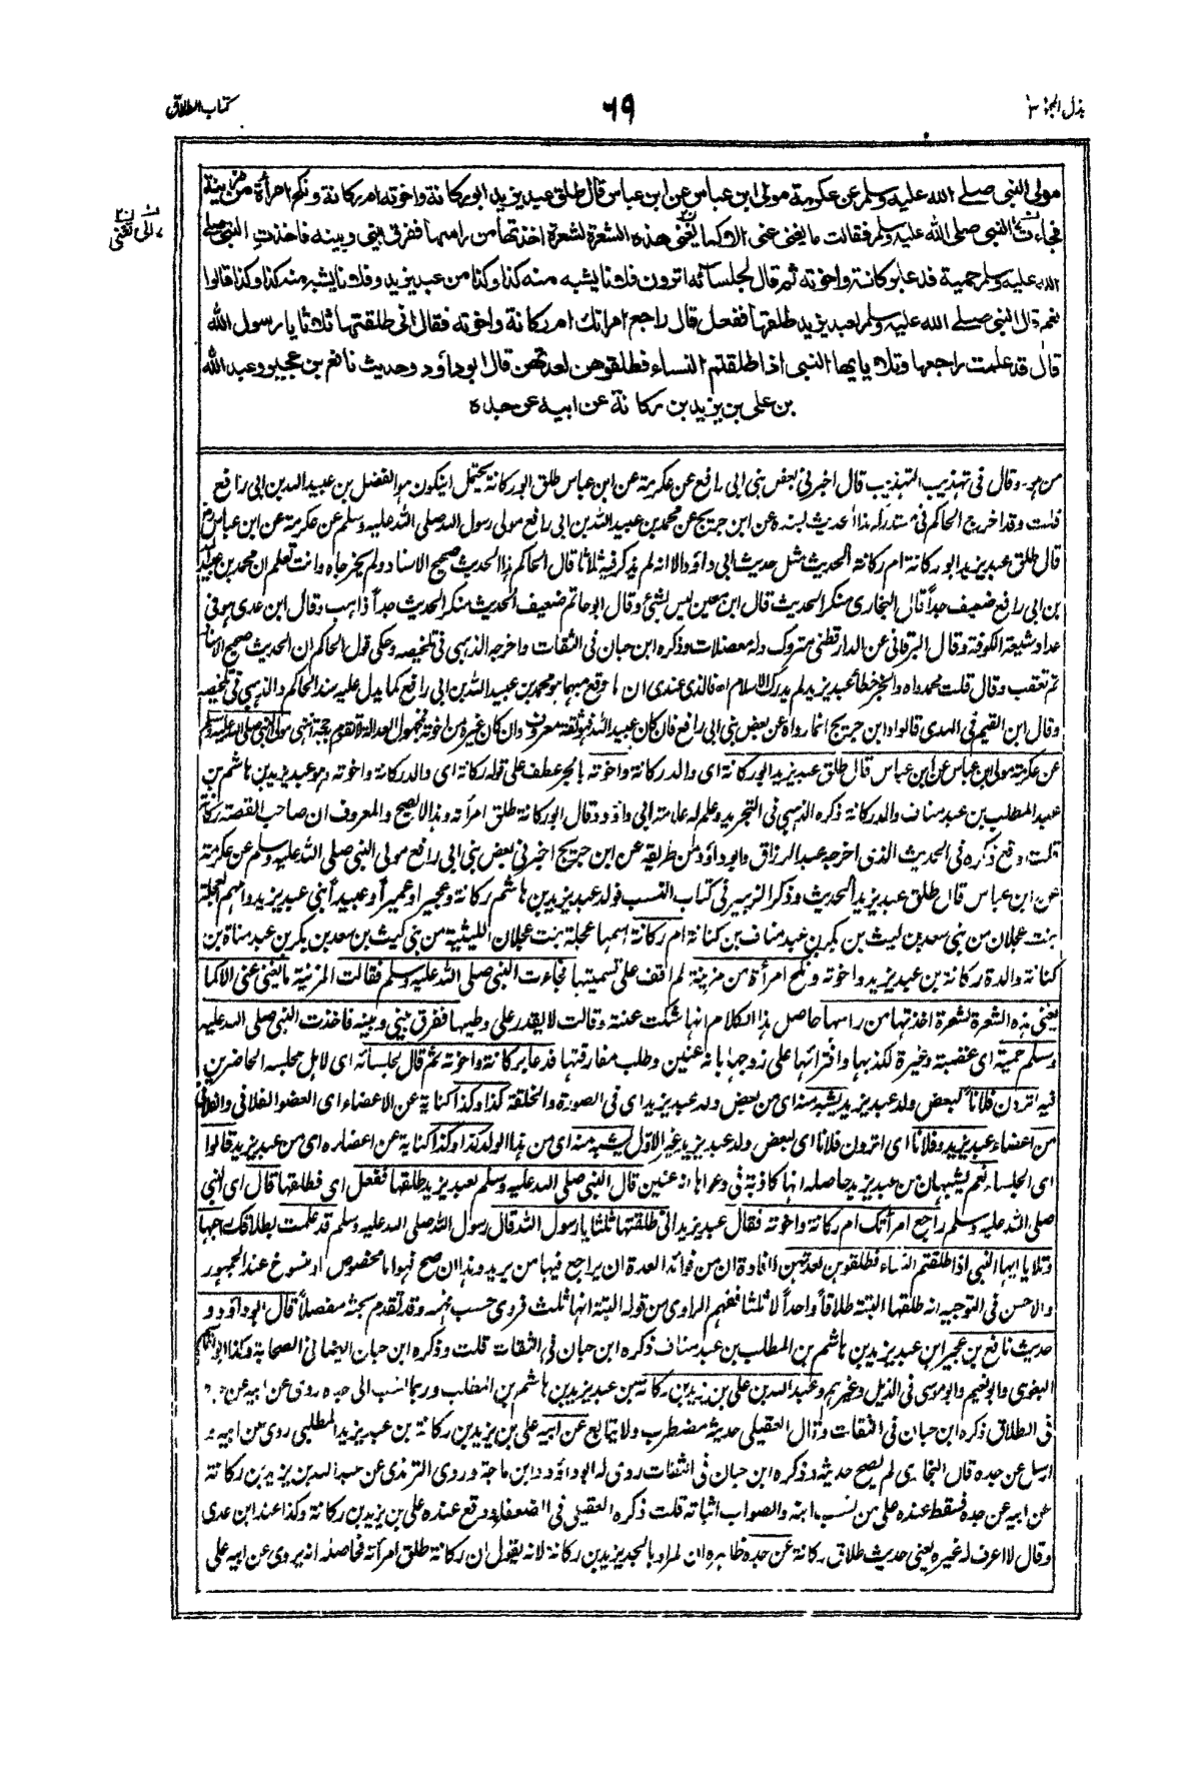 بذل المجـ ٣
٦٩
كتاب الطلاق
مولى النبي صلے الله عليه وسلم عن عكرمة مولى ابن عباس عن ابن عباس قال طلق عبد يزيد ابو ركانة واخوته ام ركانة ونكح امرأة من مزينة
فجاءت النبي صلى الله عليه وسلم فقالت ما يغنى عنى الا كما يغنى هذه الشعرة لشعرة اخذتها من راسها ففرق بيني وبينه فاخذت النبي صلے
الله عليه وسلم حمية فدعا بركانة واخوته ثم قال لجلسائه اترون فلانا يشبه منه كذا وكذا من عبد يزيد وفلانا يشبه منه كذا وكذا قالوا
نعم قال النبي صلے الله عليه وسلم لعبد يزيد طلقها ففعل قال راجع امراتك ام ركانة واخوته فقال انى طلقتها ثلاثا يا رسول الله
قال قد علمت راجعها وتلا يايها النبى اذا طلقتم النساء فطلقوهن لعدتهن قال ابو داؤد وحديث نافع بن عجير وعبد الله
بن على بن يزيد بن ركانة عن ابيه عن جده
من هو وقال فى تهذيب التهذيب قال اخبرنى بعض بنى ابى رافع عن عكرمة عن ابن عباس طلق ابو ركانة يحتمل ان يكون هو الفضل بن عبيد الله بن ابى رافع
قلت وقد اخرج الحاكم فى مستدركه هذا الحديث بسنده عن ابن جريج عن محمد بن عبيد الله بن ابى رافع مولى رسول الله صلى الله عليه وسلم عن عكرمة عن ابن عباس
قال طلق عبد يزيد ابو ركانة ام ركانة الحديث مثل حديث ابى داؤد الا انه لم يذكر فيه ثلاثا قال الحاكم هذا الحديث صحيح الاسناد ولم يخرجاه وانت تعلم ان محمد بن عبيد الله
بن ابى رافع ضعيف جداً قال البخارى منكر الحديث قال ابن معين ليس بشئ وقال ابو حاتم ضعيف الحديث منكر الحديث جداً ذاهب وقال ابن عدى هو فى
عداد شيعة الكوفة وقال البرقانى عن الدارقطنى متروك وله معضلات وذكره ابن حبان فى الثقات واخرجه الذهبى فى تلخيصه وحكى قول الحاكم ان الحديث صحيح الاسناد
ثم تعقب وقال قلت محمد واه والخبر خطأ عبد يزيد لم يدرك الاسلام اه فالذى عندى ان ما وقع مبهما هو محمد بن عبيد الله بن ابى رافع كما يدل عليه سند الحاكم والذهبى فى تلخيصه
وقال ابن القيم فى الهدى قالوا وابن جريج انما رواه عن بعض بنى ابى رافع فان كان عبيد الله فهو ثقة معروف وان كان غيره من اخوته فمجهول العدالة لا تقوم به حجة انتهى مولى النبى صلى الله عليه وسلم
عن عكرمة مولى ابن عباس عن ابن عباس قال طلق عبد يزيد ابو ركانة اى والد ركانة واخوته بالجر عطف على قوله ركانة اى والد ركانة واخوته وهو عبد يزيد بن هاشم بن
عبد المطلب بن عبد مناف والد ركانة ذكره الذهبى فى التجريد وعلم له علامة ابى داؤد وقال ابو ركانة طلق امرأته وهذا لا يصح والمعروف ان صاحب القصة ركانة
قلت وقع ذكره فى الحديث الذى اخرجه عبد الرزاق وابو داؤد من طريقه عن ابن جريج اخبرنى بعض بنى ابى رافع مولى النبى صلى الله عليه وسلم عن عكرمة
عن ابن عباس قال طلق عبد يزيد الحديث وذكر الزبير فى كتاب النسب فولد عبد يزيد بن هاشم ركانة وعجيرا وعميرا وعبيدا بنى عبد يزيد وامهم العجلة
بنت عجلان من بنى سعد بن ليث بن بكر بن عبد مناف بن كنانة ام ركانة اسمها عجلة بنت عجلان الليثية من بنى ليث بن سعد بن بكر بن عبد مناة بن
كنانة والدة ركانة بن عبد يزيد واخوته ونكح امرأة من مزينة لم اقف على تسميتها فجاءت النبى صلى الله عليه وسلم فقالت المزنية ما يغنى عنى الا كما
يغنى هذه الشعرة لشعرة اخذتها من راسها حاصل هذا الكلام انها شكت عنته وقالت لا يقدر على وطيها ففرق بينى وبينه فاخذت النبى صلى الله عليه
وسلم حمية اى عضبة وغيرة لكذبها وافترائها على زوجها بانه عنين وطلب مفارقتها فدعا بركانة واخوته ثم قال لجلسائه اى لاهل مجلسه الحاضرين
فيه اترون فلانا لبعض ولد عبد يزيد يشبه منه اى من بعض ولد عبد يزيد اى فى الصورة والخلقة كذا وكذا كناية عن الاعضاء اى العضو الفلانى والفلانى
من اعضاء عبد يزيد وفلانا اى اترون فلانا اى لبعض ولد عبد يزيد غير الاول يشبه منه اى من هذا الولد كذا وكذا كناية عن اعضاءه اى من عبد يزيد قالوا
اى الجلساء نعم يشبهان من عبد يزيد حاصله انها كاذبة فى دعواها انه عنين قال النبى صلى الله عليه وسلم لعبد يزيد طلقها ففعل اى فطلقها قال اى النبى
صلى الله عليه وسلم راجع امرأتك ام ركانة واخوته فقال عبد يزيد انى طلقتها ثلثا يا رسول الله قال رسول الله صلى الله عليه وسلم قد علمت بطلاقك راجعها
وتلا يا ايها النبى اذا طلقتم النساء فطلقوهن لعدتهن افادة ان من فوائد العدة ان يراجع فيها من يريد وهذا ان صح فهو اما مخصوص او منسوخ عند الجمهور
والاحسن فى التوجيه انه طلقها البتة طلاقاً واحداً لا ثلثا ففهم الراوى من قوله البتة انها ثلث فروى حسب فهمه وقد تقدم بحثه مفصلاً قال ابو داؤد و
حديث نافع بن عجير ابن عبد يزيد بن هاشم بن المطلب بن عبد مناف ذكره ابن حبان فى الثقات قلت وذكره ابن حبان ايضا فى الصحابة وكذا ابو القاسم
البغوى وابو نعيم وابو موسى فى الذيل وغيرهم وعبد الله بن على بن يزيد بن ركانة بن عبد يزيد بن هاشم بن المطلب وربما نسب الى جده روى عن ابيه عن جده
فى الطلاق ذكره ابن حبان فى الثقات وقال العقيلى حديثه مضطرب ولا يتابع عن ابيه على بن يزيد بن ركانة بن عبد يزيد المطلبى روى عن ابيه و
ارسل عن جده قال البخارى لم يصح حديثه وذكره ابن حبان فى الثقات روى له ابو داؤد وابن ماجة وروى الترمذى عن عبد الله بن يزيد بن ركانة
عن ابيه عن جده فسقط عنده على من نسب ابنه والصواب اثباته قلت ذكره العقيلى فى الضعفاء ووقع عنده على بن يزيد بن ركانة وكذا عند ابن عدى
وقال لا اعرف له غيره يعنى حديث طلاق ركانة عن جده ظاهره ان المراد بالجد يزيد بن ركانة لانه يقول ان ركانة طلق امرأته فحاصله انه يروى عن ابيه على